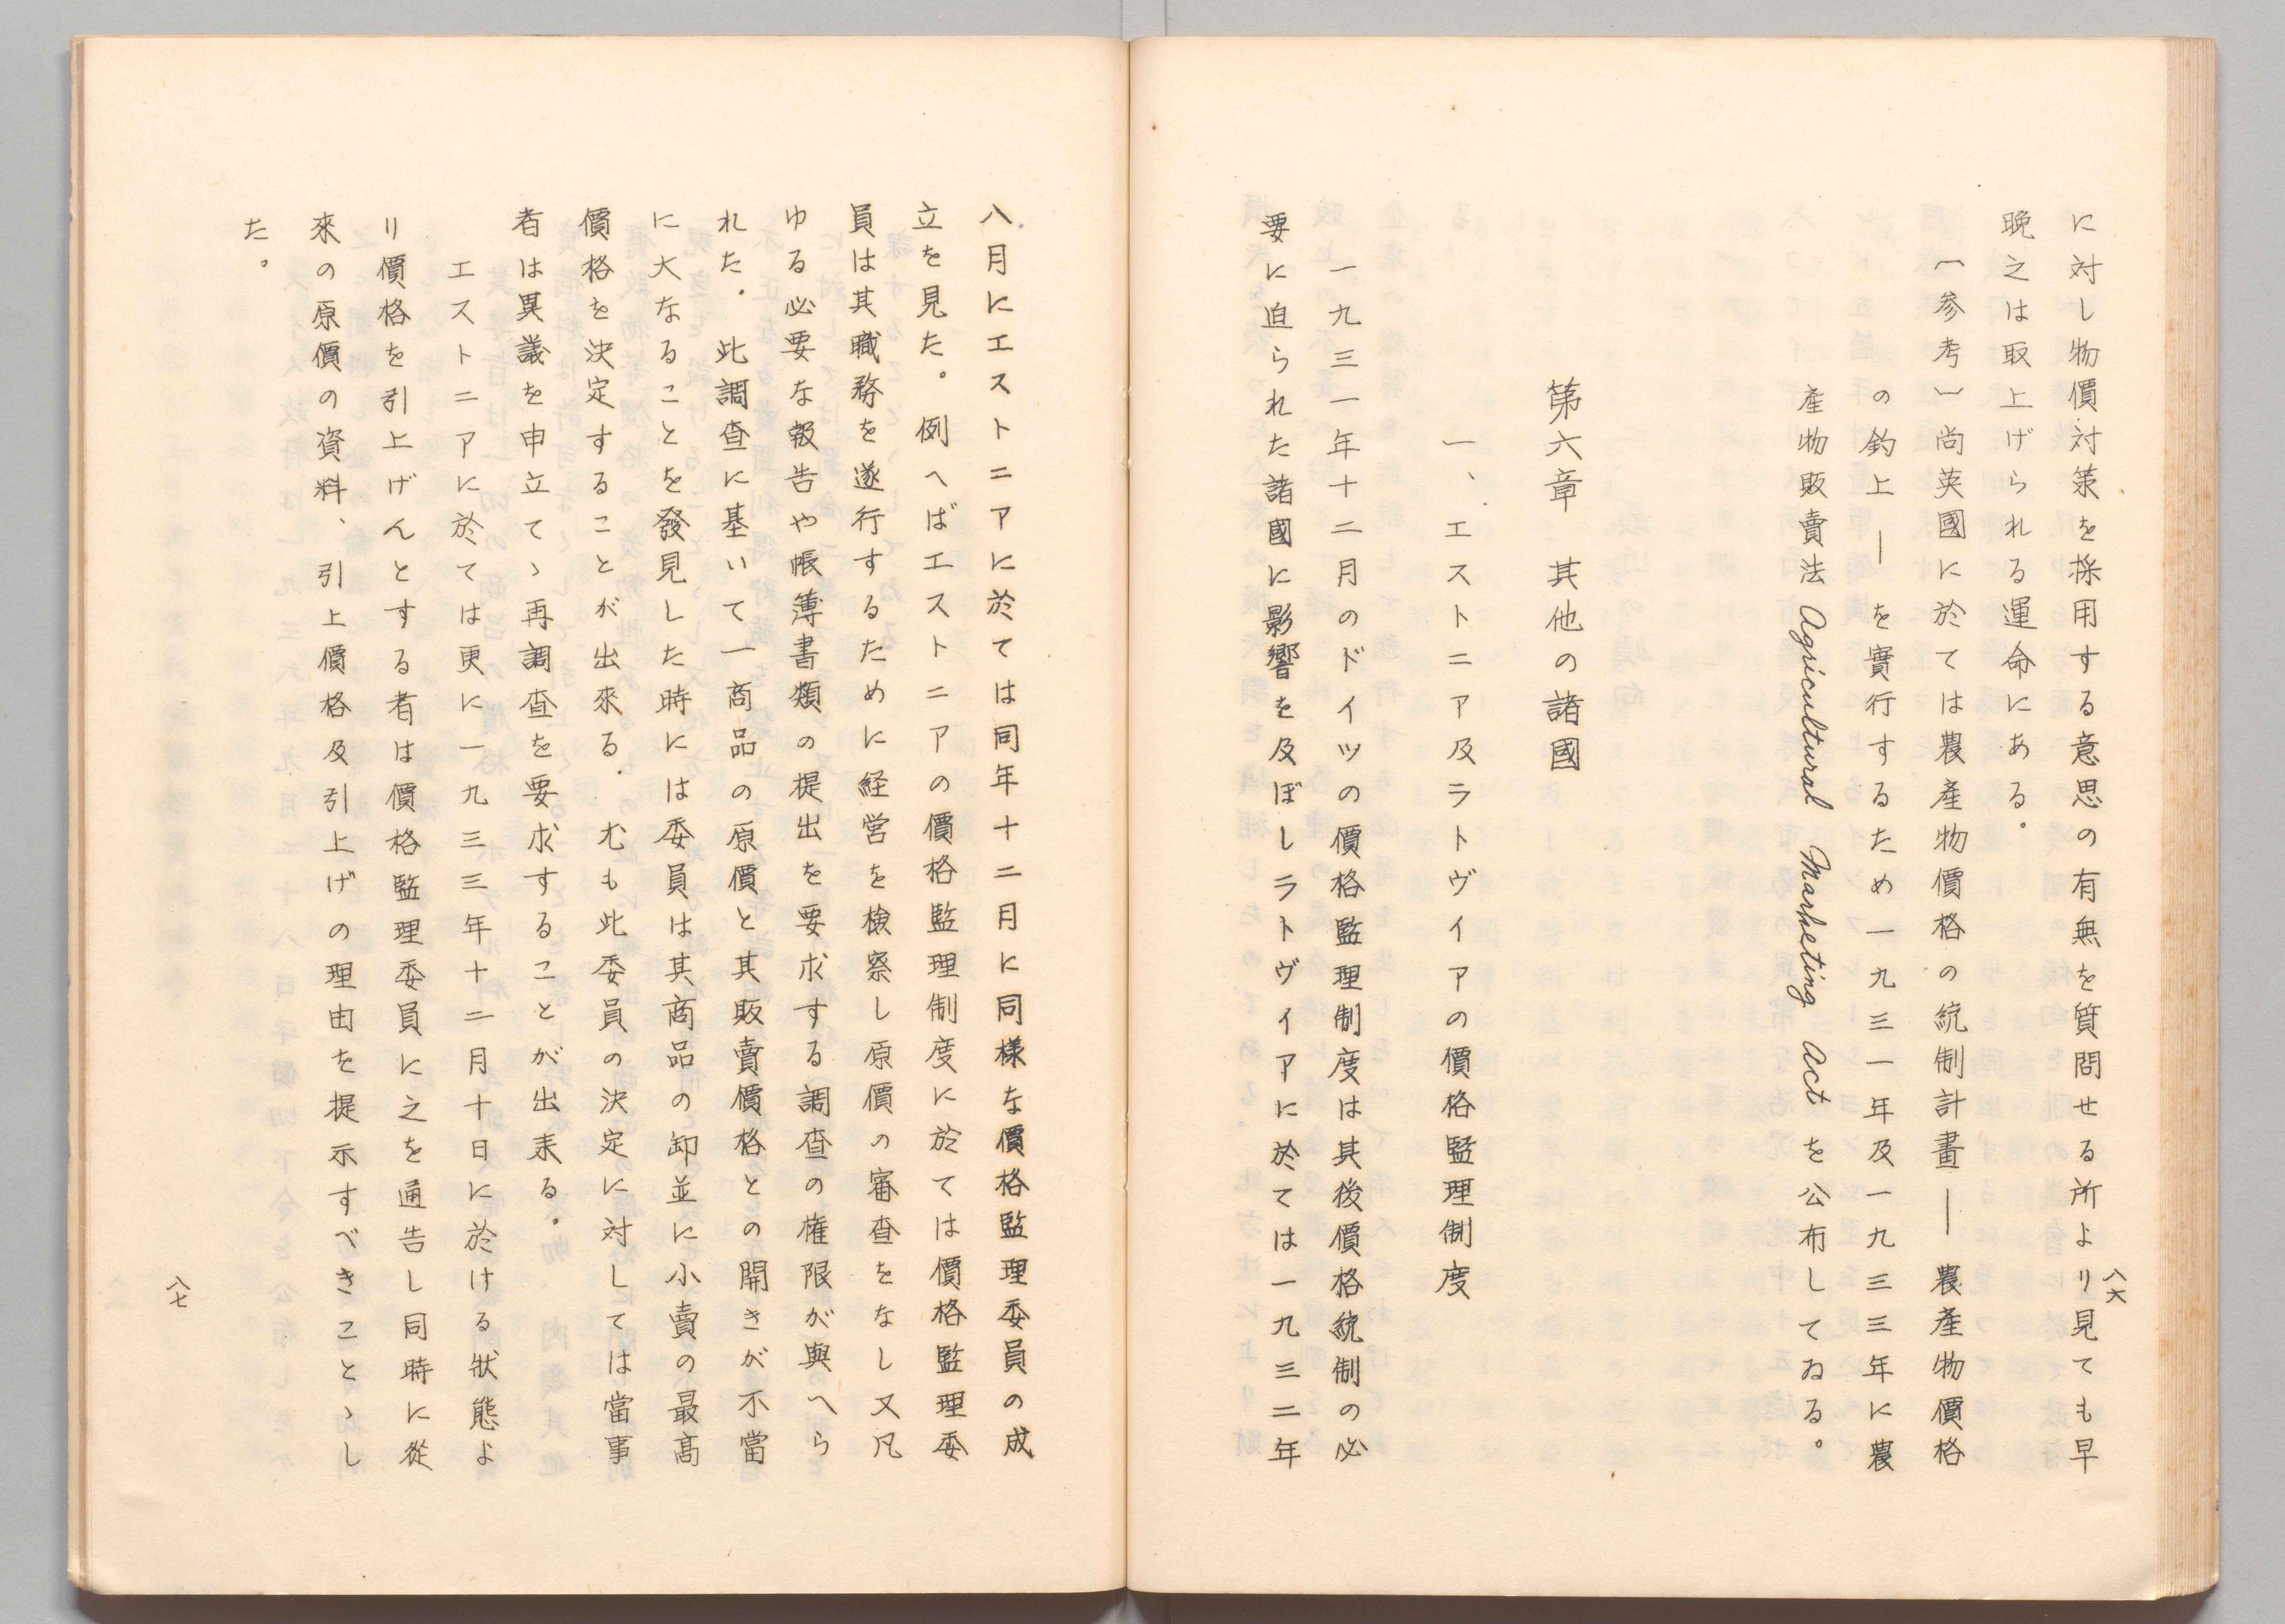 に対し物價対策を採用する意思の有無を質問せる所より見ても早
晩之は取上げられる運命にある。
〔参考〕尚英國に於ては農産物價格の統制計畫――農産物價格
の釣上――を實行するため一九三一年及一九三三年に農
産物販賣法 Agricultural Marketing Act を公布してゐる。
第六章　其他の諸國
一、エストニア及ラトヴイアの價格監理制度
一九三一年十二月のドイツの價格監理制度は其後價格統制の必
要に迫られた諸國に影響を及ぼしラトヴイアに於ては一九三二年
八六
八月にエストニアに於ては同年十二月に同様な價格監理委員の成
立を見た。例へばエストニアの價格監理制度に於ては價格監理委
員は其職務を遂行するために経営を檢察し原價の審査をなし又凡
ゆる必要な報告や帳簿書類の提出を要求する調査の権限が與へら
れた。此調査に基いて一商品の原價と其販賣價格との開きが不當
に大なることを發見した時には委員は其商品の卸並に小賣の最高
價格を決定することが出來る。尤も此委員の決定に対しては當事
者は異議を申立てゝ再調査を要求することが出来る。
エストニアに於ては更に一九三三年十二月十日に於ける狀態よ
り價格を引上げんとする者は價格監理委員に之を通告し同時に從
來の原價の資料、引上價格及引上げの理由を提示すべきことゝし
た。
八七